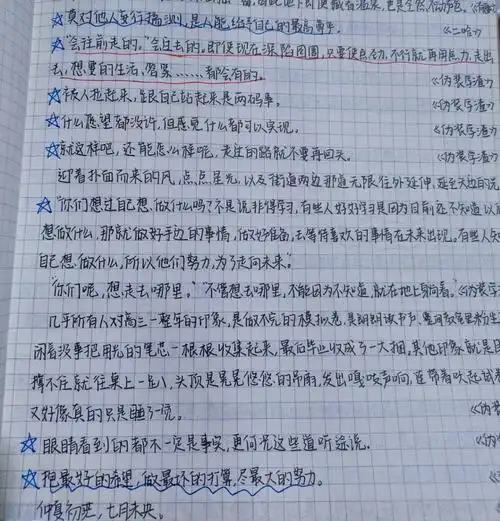 ☆莫对他人妄行揣测,是人能给予自己的最高尊重。
《二哈》
☆"会往前走的。""会过去的。即使现在深陷囹圄,只要使点劲,不行就再用点力,走出
去,想要的生活,答案……都会有的。
《伪装学渣》
☆被人拖起来,跟自己站起来是两码事。
《伪装学渣》
☆什么愿望都没许,但感觉什么都可以实现。
《伪装学渣》
☆就这样吧,还能怎么样呢,走过的路就不要再回头。
《伪装学渣》
迎着扑面而来的风,点点星光,以及街道两边那道无限往外延伸,延至天边的
☆"你们想过自己想做什么吗?不是说非得学习,有些人好好学习是因为目前还不知道以
想做什么,那就做好手边的事情,做好准备,去等待喜欢的事情在未来出现。有些人知
自己想做什么,所以他们努力,为了走向未来。"
"你们呢,想走去哪里。""不管想去哪里,不能因为不知道,就在地上匍匐着。"《伪装学
几乎所有人对高三一整年的印象,是做不完的模拟卷,是朗朗读书声,
闲着没事把用光的笔芯一根根收集起来,最后毕业收成了一大捆,其他印象就是困
撑不住就往桌上一趴,头顶是晃晃悠悠的吊扇,发出嘎吱声响,连带着吹起试卷
又好像真的只是睡了一觉。
《伪
☆眼睛看到的都不一定是事实,更何况这些道听途说。
《伪
☆抱最好的希望,做最坏的打算,尽最大的努力。
仲夏初至,七月未央。